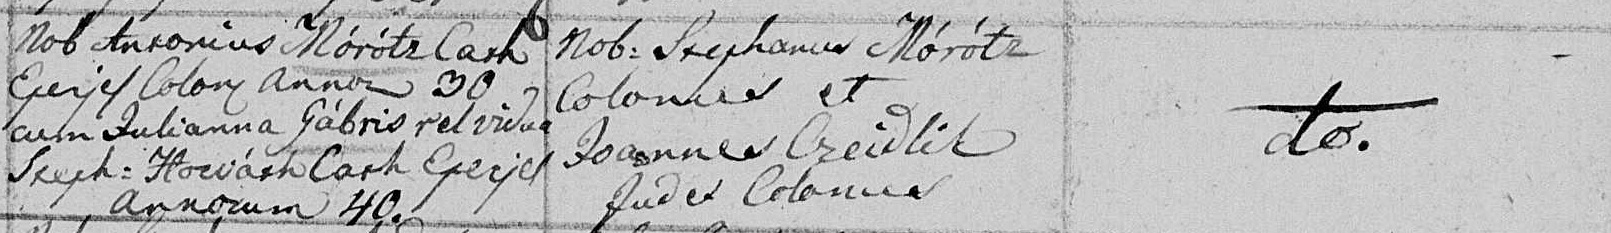 Nob Antonius Mórótz Cath
Eperjes Colony Annor 30
cum Julianna Gábris rel vidua
Steph: Horváth Cath Eperjes
Annorum 40.
Nob: Stephanus Mórótz
Colonus et
Joannes Czeidlik
Judex Colonus
do.